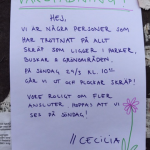 HEJ,
VI ÄR NÅGRA PERSONER SOM
HAR TRÖTTNAT PÅ ALLT
SKRÄP SOM LIGGER I PARKER,
BUSKAR & GRÖNOMRÅDEN.
PÅ SÖNDAG, 29/3 KL. 10⁰⁰
GÅR VI UT OCH PLOCKAR SKRÄP!
VORE ROLIGT OM FLER
ANSLUTER. HOPPAS ATT VI
SES PÅ SÖNDAG!
// CECILIA